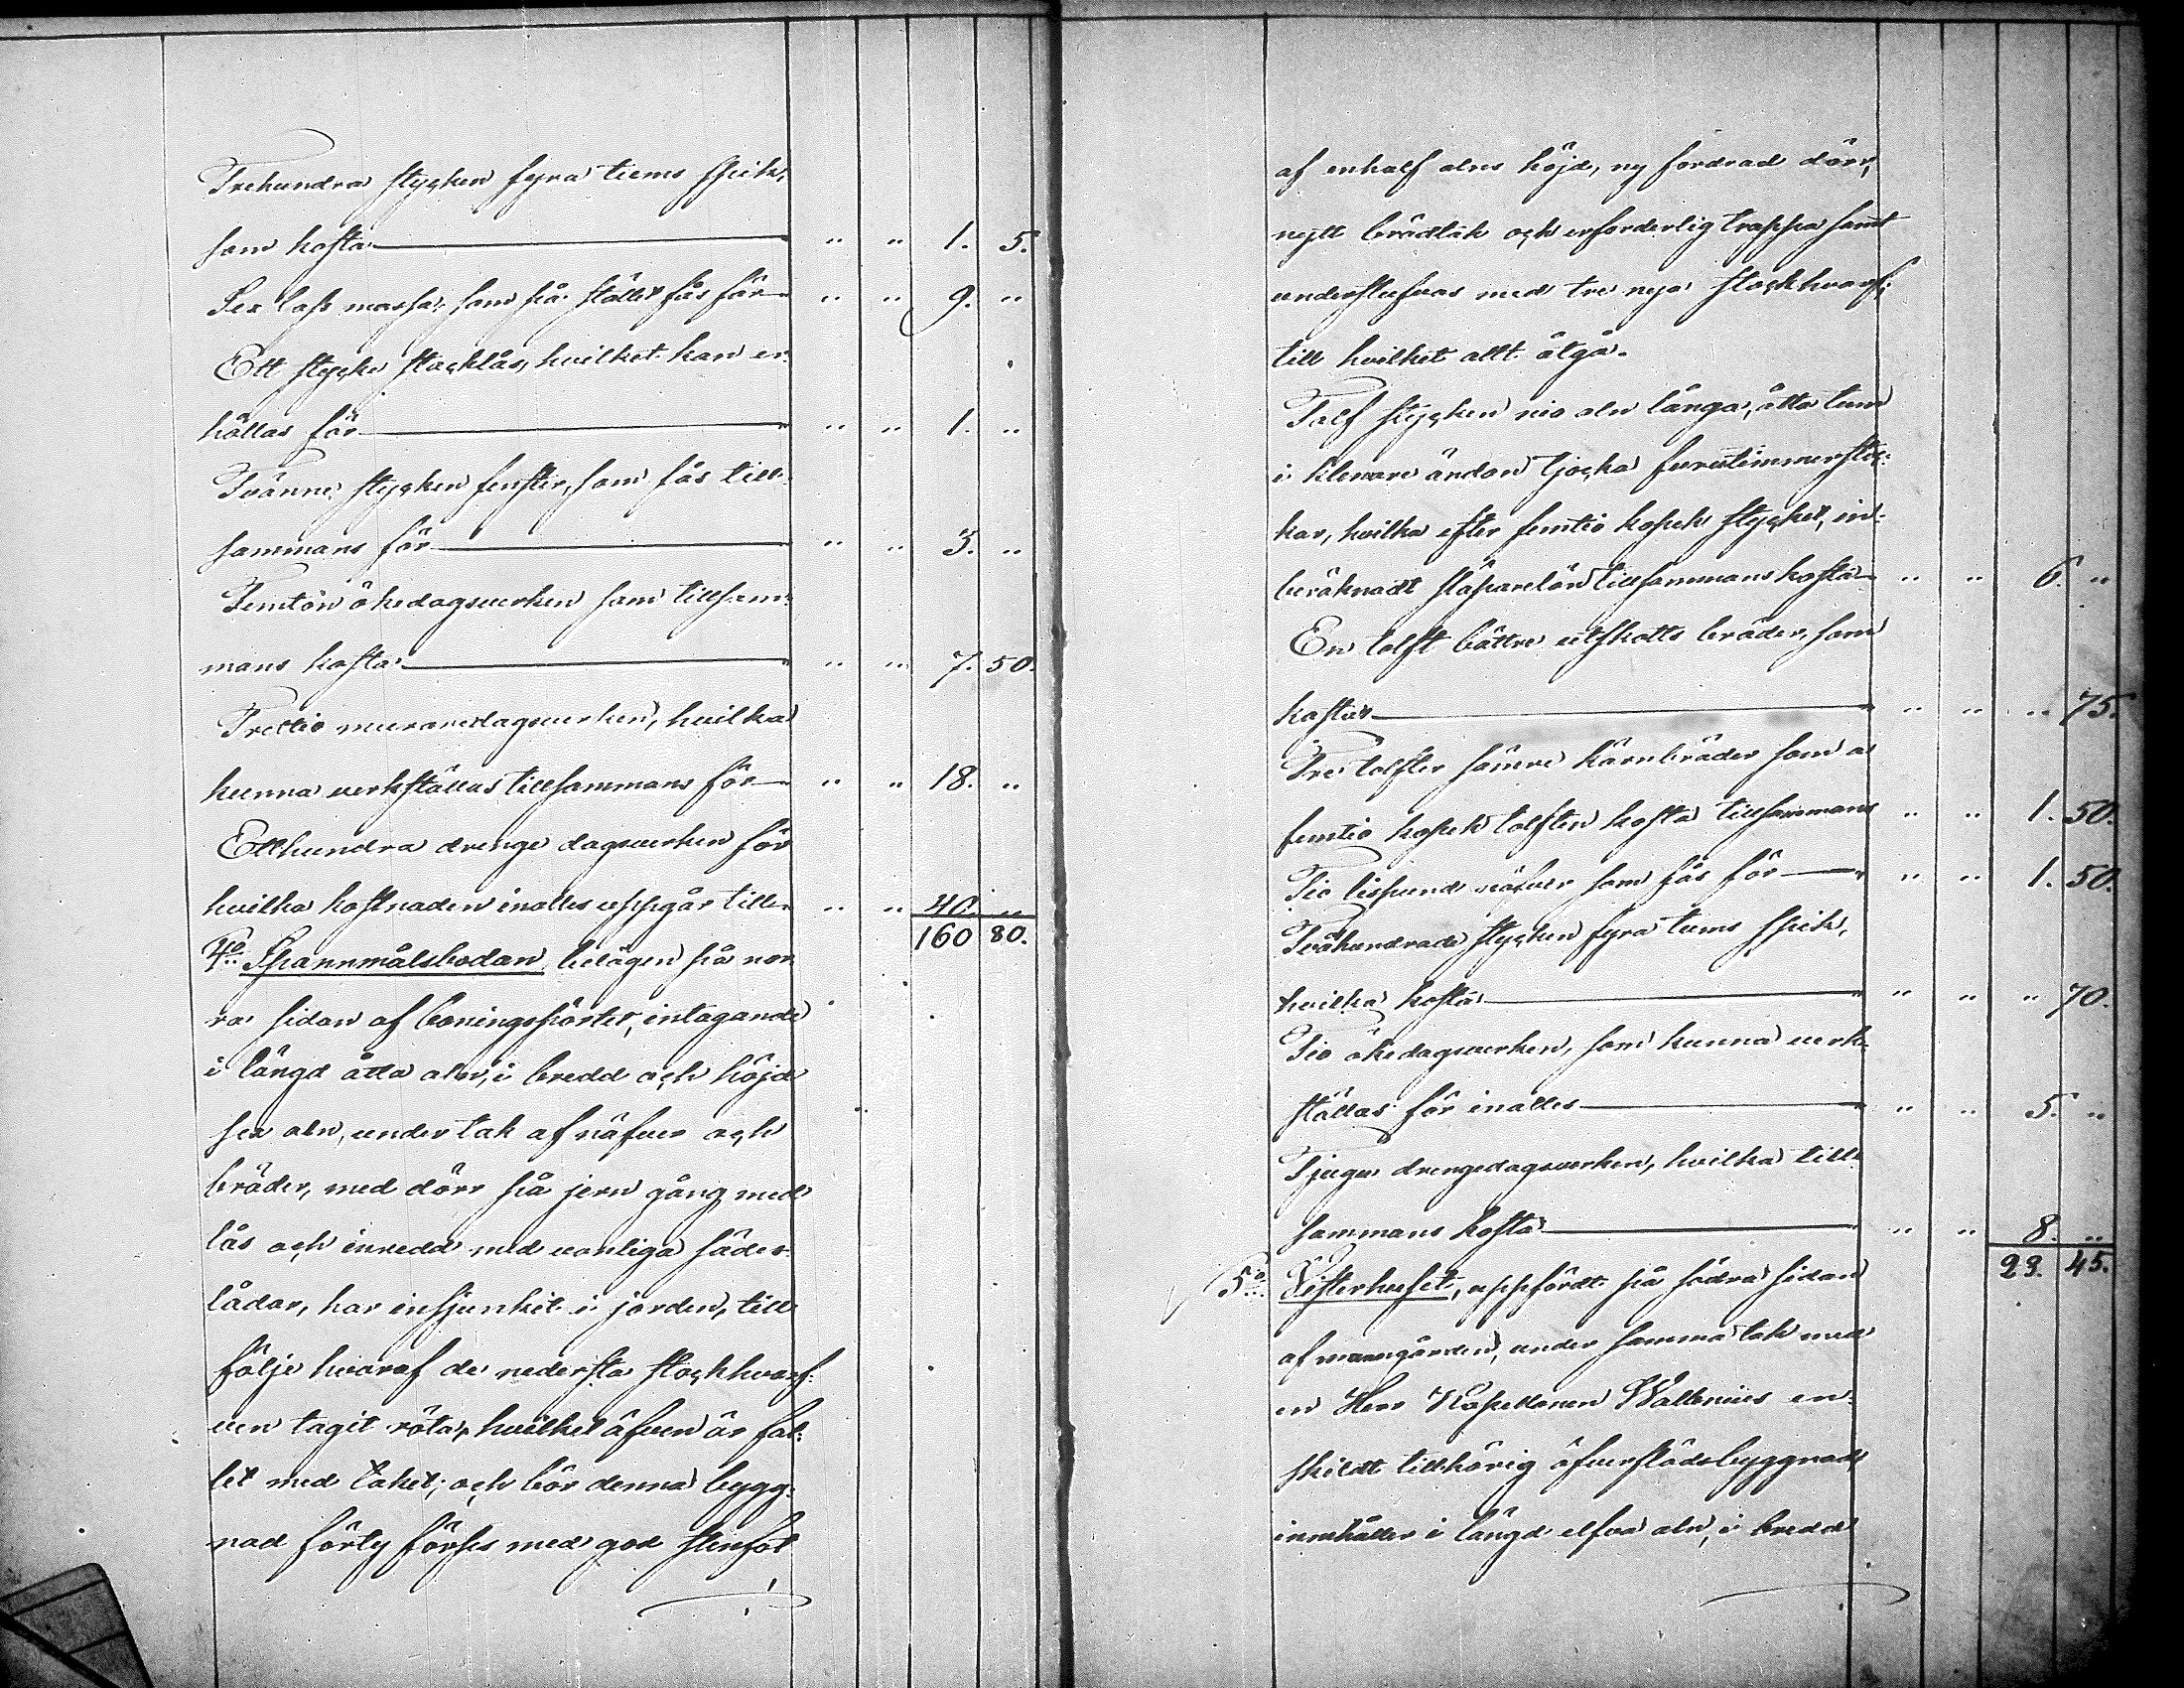 Trehundra stycken fyra tums spik,
som kosta " " 1. 5.
Sex lass mossa, som på stället fås för " " 9. "
Ett stycke stocklås, hvilket kan er-
hållas för " " 1. "
Tvänne stycken fenster, som fås till-
sammans för " " 3. "
Femton ökedagsverken som tillsam-
mans kosta " " 7. 50.
Trettio muraredagsverken, hvilka
kunna verkställas tillsammans för " " 18. "
Etthundra drenge dagsverken för
hvilka kostnaden inalles uppgår till " " 40. "
160 80.
4o Spannmålsbodan, belägen på nor-
ra sidan af boningspörtet, intagande
i längd åtta alnr, i bredd och höjd
sex aln, under tak af näfver och
bräder, med dörr på jern gång med
lås och inredd med vanliga sädes-
lådor, har insjunkit i jorden, till
följe hvaraf de nedersta stockhvarf-
ven tagit röta, hvilket äfven är fal-
let med taket; och bör denna bygg-
nad förty förses med god stenfot
af enhalf alns höjd, ny fordrad dörr,
nytt brädtak och erforderlig trappa samt
understufvas med tre nya stockhvarf;
till hvilket allt åtgå.
Tolf stycken nio aln långa, åtta tum
i klenare ändan tjocka furutimmerstoc-
kar, hvilka efter femtio kopek stycket, in-
beräknadt släparelön tillsammans kosta " " 6. "
En tolft bättre utskotts bräder, som
kostar " " " 75.
Tre tolfter sämre kärnbräder som a
femtio kopek tolften kosta tillsammans " " 1. 50.
Tio lispund näfver som fås för " " 1. 50.
Tvåhundrade stycken fyra tums spik,
hvilka kosta " " " 70.
Tio ökedagsverken, som kunna verk-
ställas för inalles " " 5. "
Tjugu drengedagsverken, hvilka till-
sammans kosta " " 8. "
23. 45.
5o Visterhuset, uppfördt på södra sidan
af mangården, under samma tak med
en Herr Kapellanen Wallenius en-
skildt tillhörig öfverflödsbyggnad,
innehåller i längd elfva aln, i bredd